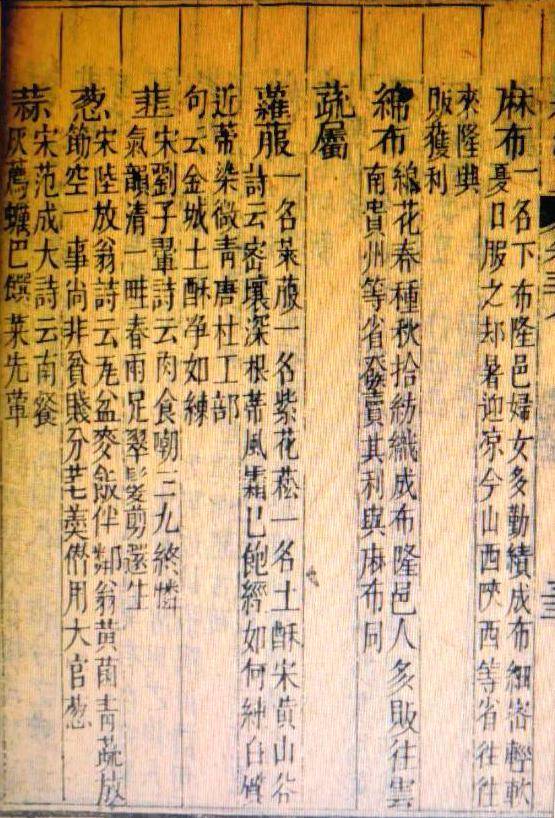 麻布一名下布隆邑婦女多勤績成布細密輕軟
夏日服之却暑迎凉今山西陜西等省往往
來隆興
販獲利
綿布線花春種秋拾紡織成布隆邑人多販往雲
南貴州等省發賣其利與麻布同
蔬屬
蘿菔一名萊菔一名紫花菘一名土酥宋黄山谷
詩云密壤深根蒂風霜已飽經如何紳白質
近蒂染微青唐杜工部
句云金城土酥净如練
韮宋劉子翬詩云肉食嘲三九終憐
氣韻清一畦春雨足翠髮剪還生
葱宋陸放翁詩云瓦盆麥飯伴鄰翁黄菌青蔬放
筯空一事尚非貧賤分芼羹僭用大官葱
蒜宋范成大詩云南餐
灰薦蠣巴饌菜先葷